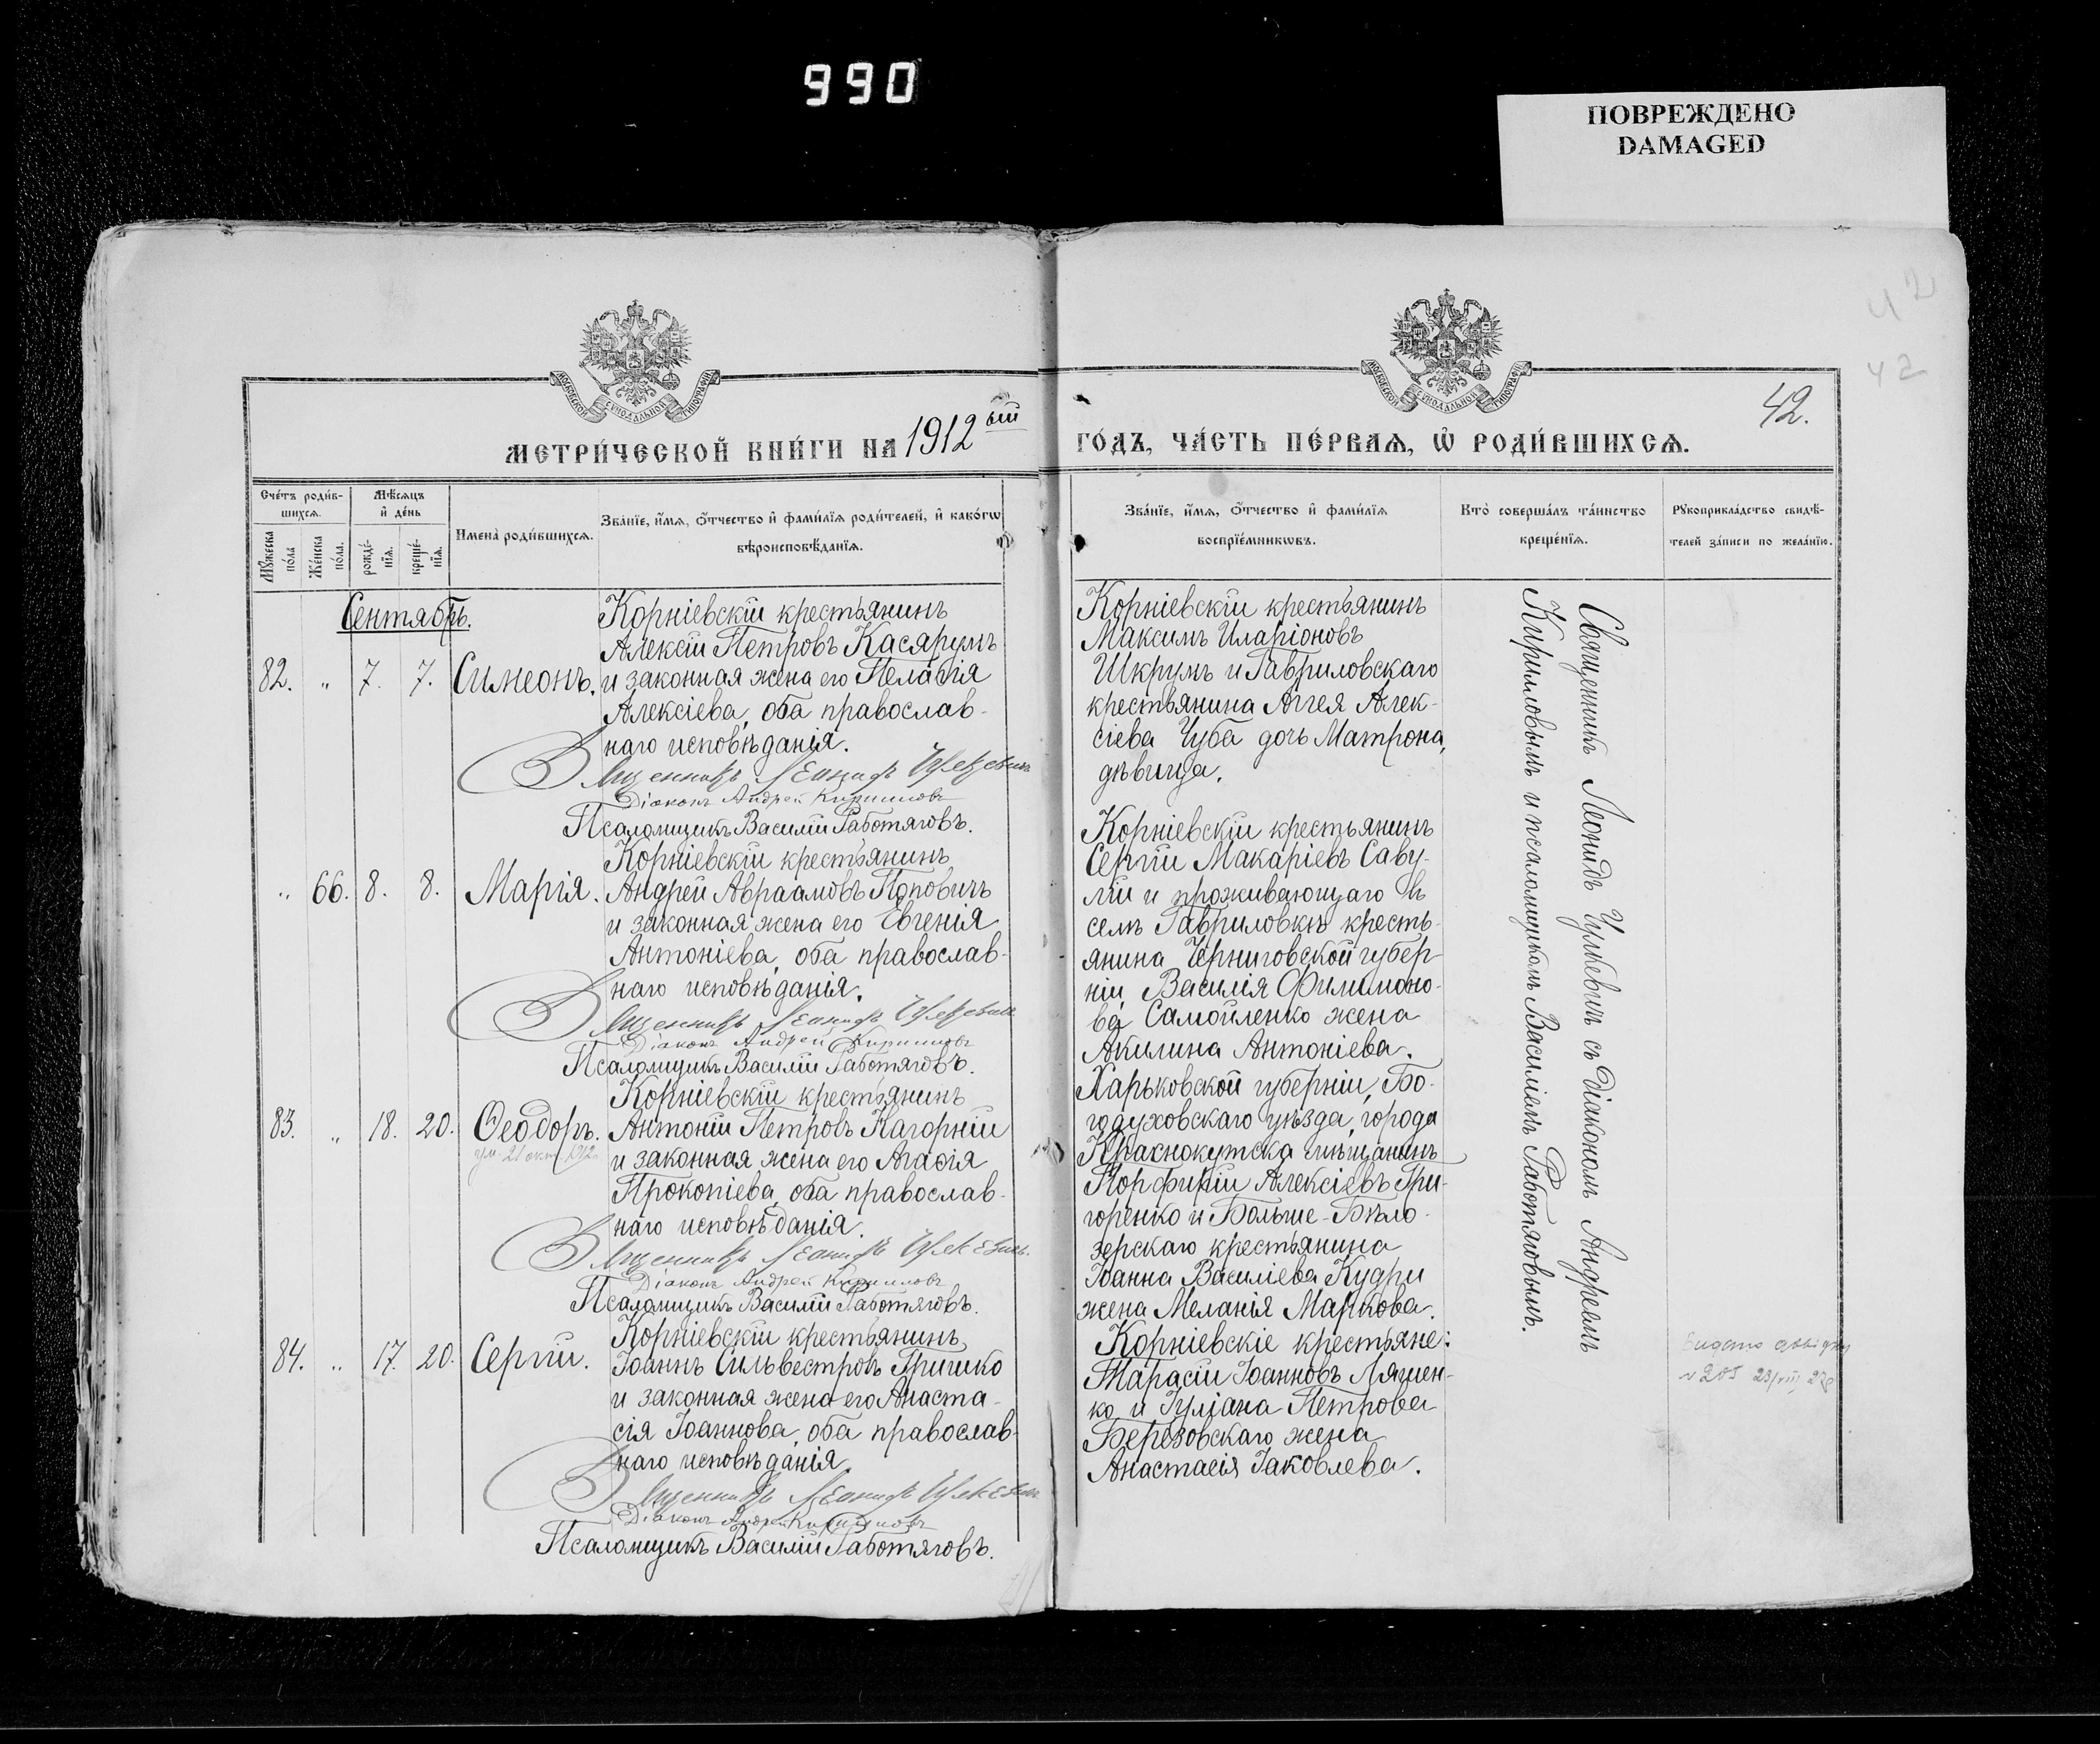 990
ПОВРЕЖДЕНО
DAMAGED
МОСКОВСКОЙ СѴНОДАЛЬНОЙ ТИПОГРАФІИ
МОСКОВСКОЙ СѴНОДАЛЬНОЙ ТИПОГРАФІИ
42
42
42.
МЕТРИ́ЧЕСКОЙ КНИ́ГИ НА 1912ый
ГО́ДЪ, ЧА́СТЬ ПЕ́РВАѦ, Ѡ҆ РОДИ́ВШИХСѦ.
Сче́тъ роди́в-
шихсѧ.
Мꙋ́жеска
по́ла
Же́нска
по́ла.
Мѣ́сѧцъ
и҆ де́нь
рожде́-
нїѧ.
креще́-
нїѧ.
И҆мена̀ роди́вшихсѧ.
Зва́нїе, и҆́мѧ, ѻ҆́тчество и҆ фами́лїѧ роди́телей, и҆ како́гѡ
вѣроисповѣ́данїѧ.
Зва́нїе, и҆́мѧ, ѻ҆́тчество и҆ фами́лїѧ
воспрїе́мникѡвъ.
Кто̀ соверша́лъ та́инство
креще́нїѧ.
Рꙋкоприкла́дство свидѣ́-
телей за́писи по жела́нїю.
Сентябрь.
82. „ 7. 7. Симеонъ.
Корніевскій крестьянинъ
Алексій Петровъ Касярумъ
и законная жена его Пелагія
Алексіева, оба православ-
наго исповѣданія.
Священникъ Леонидъ Цулкевичъ
Діаконъ Андрей Кирилловъ
Псаломщикъ Василій Работяговъ.
Корніевскій крестьянинъ
Максимъ Иларіоновъ
Шкрумъ и Гавриловскаго
крестьянина Аггея Алек-
сіева Чуба дочь Матрона,
дѣвица.
„ 66. 8. 8. Марія.
Корніевскій крестьянинъ
Андрей Авраамовъ Поповичъ
и законная жена его Евгенія
Антоніева, оба православ-
наго исповѣданія.
Священникъ Леонидъ Цулкевичъ
Діаконъ Андрей Кирилловъ
Псаломщикъ Василій Работяговъ.
Корніевскій крестьянинъ
Сергій Макаріевъ Саву-
лій и проживающаго въ
селѣ Гавриловкѣ кресть-
янина Черниговской губер-
ніи Василія Филимоно-
ва Самойленко жена
Акилина Антоніева.
83. „ 18. 20. Ѳеодоръ.
ум. 21 окт. 1912
Корніевскій крестьянинъ
Антоній Петровъ Нагорній
и законная жена его Агафія
Прокопіева, оба православ-
наго исповѣданія.
Священникъ Леонидъ Цулкевичъ.
Діаконъ Андрей Кирилловъ
Псаломщикъ Василій Работяговъ.
Харьковской губерніи, Бо-
годуховскаго уѣзда, города
Краснокутска мѣщанинъ
Порфирій Алексіевъ Гри-
горенко и Больше-Бѣло-
зерскаго крестьянина
Іоанна Василіева Кудри
жена Меланія Маркова.
84. „ 17. 20. Сергій.
Корніевскій крестьянинъ
Іоаннъ Сильвестровъ Гришко
и законная жена его Анаста-
сія Іоаннова, оба православ-
наго исповѣданія.
Священникъ Леонидъ Цулкевичъ
Діаконъ Андрей Кирилловъ
Псаломщикъ Василій Работяговъ.
Корніевскіе крестьяне:
Тарасій Іоанновъ Ляшен-
ко и Іуліана Петрова
Березовскаго жена
Анастасія Іаковлева.
Священникъ Леонидъ Цулкевичъ съ діакономъ Андреемъ
Кирилловымъ и псаломщикомъ Василіемъ Работяговымъ.
Видано довідку